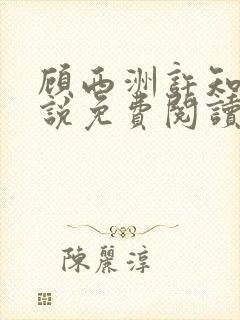 顾西洲許知
說免費閱讀
陳麗淳